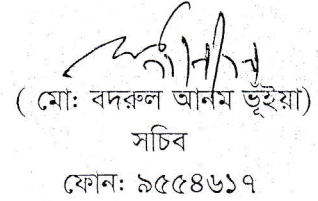 ( মো: বদরুল আনম ভূঁইয়া)
সচিব
ফোন: ৯৫৫৪৬১৭